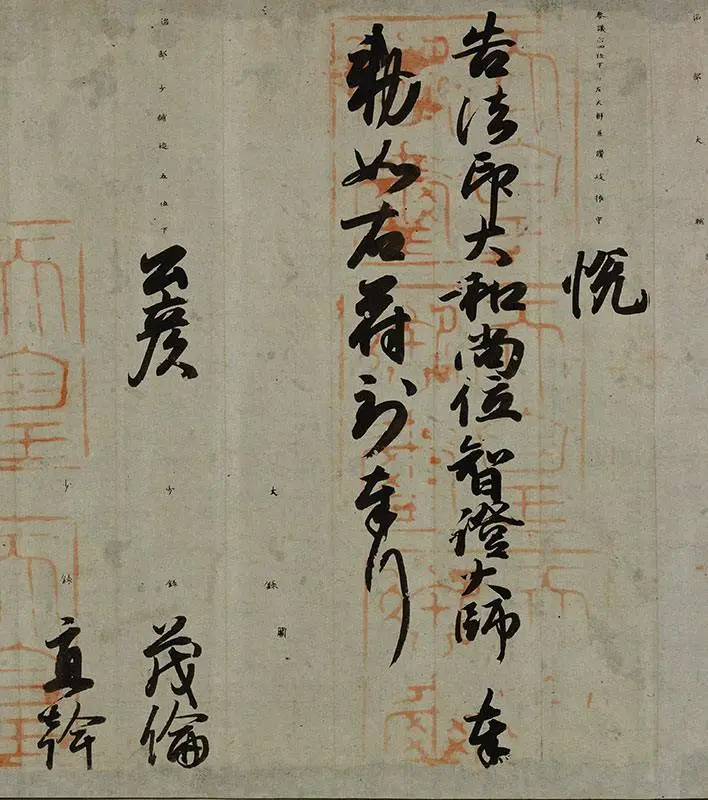 治部大輔
參議正四位下行左大辨兼讃岐權守悦
告法印大和尚位智證大師 奉
勅如右符到奉行
大録闕
治部少輔從五位下公彦 少録茂倫
少録直幹